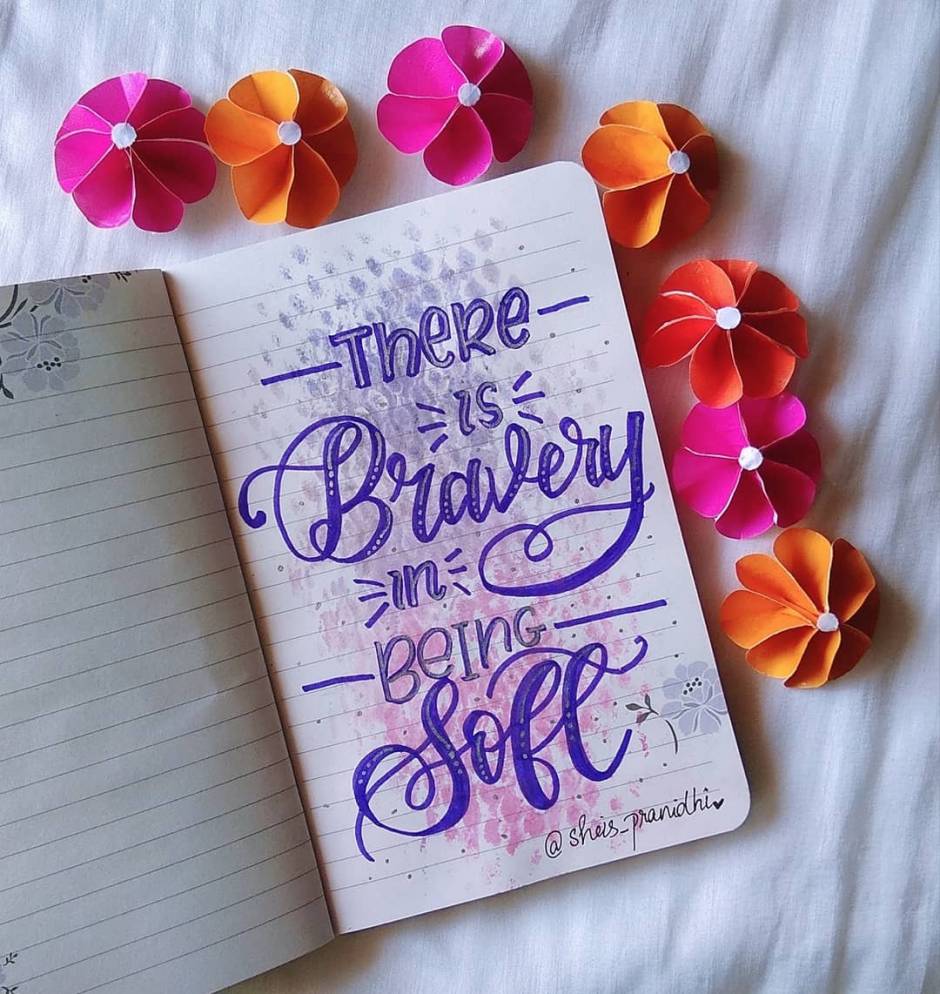 There
is
Bravery
in
BEING
Soft
@sheis_pranidhi